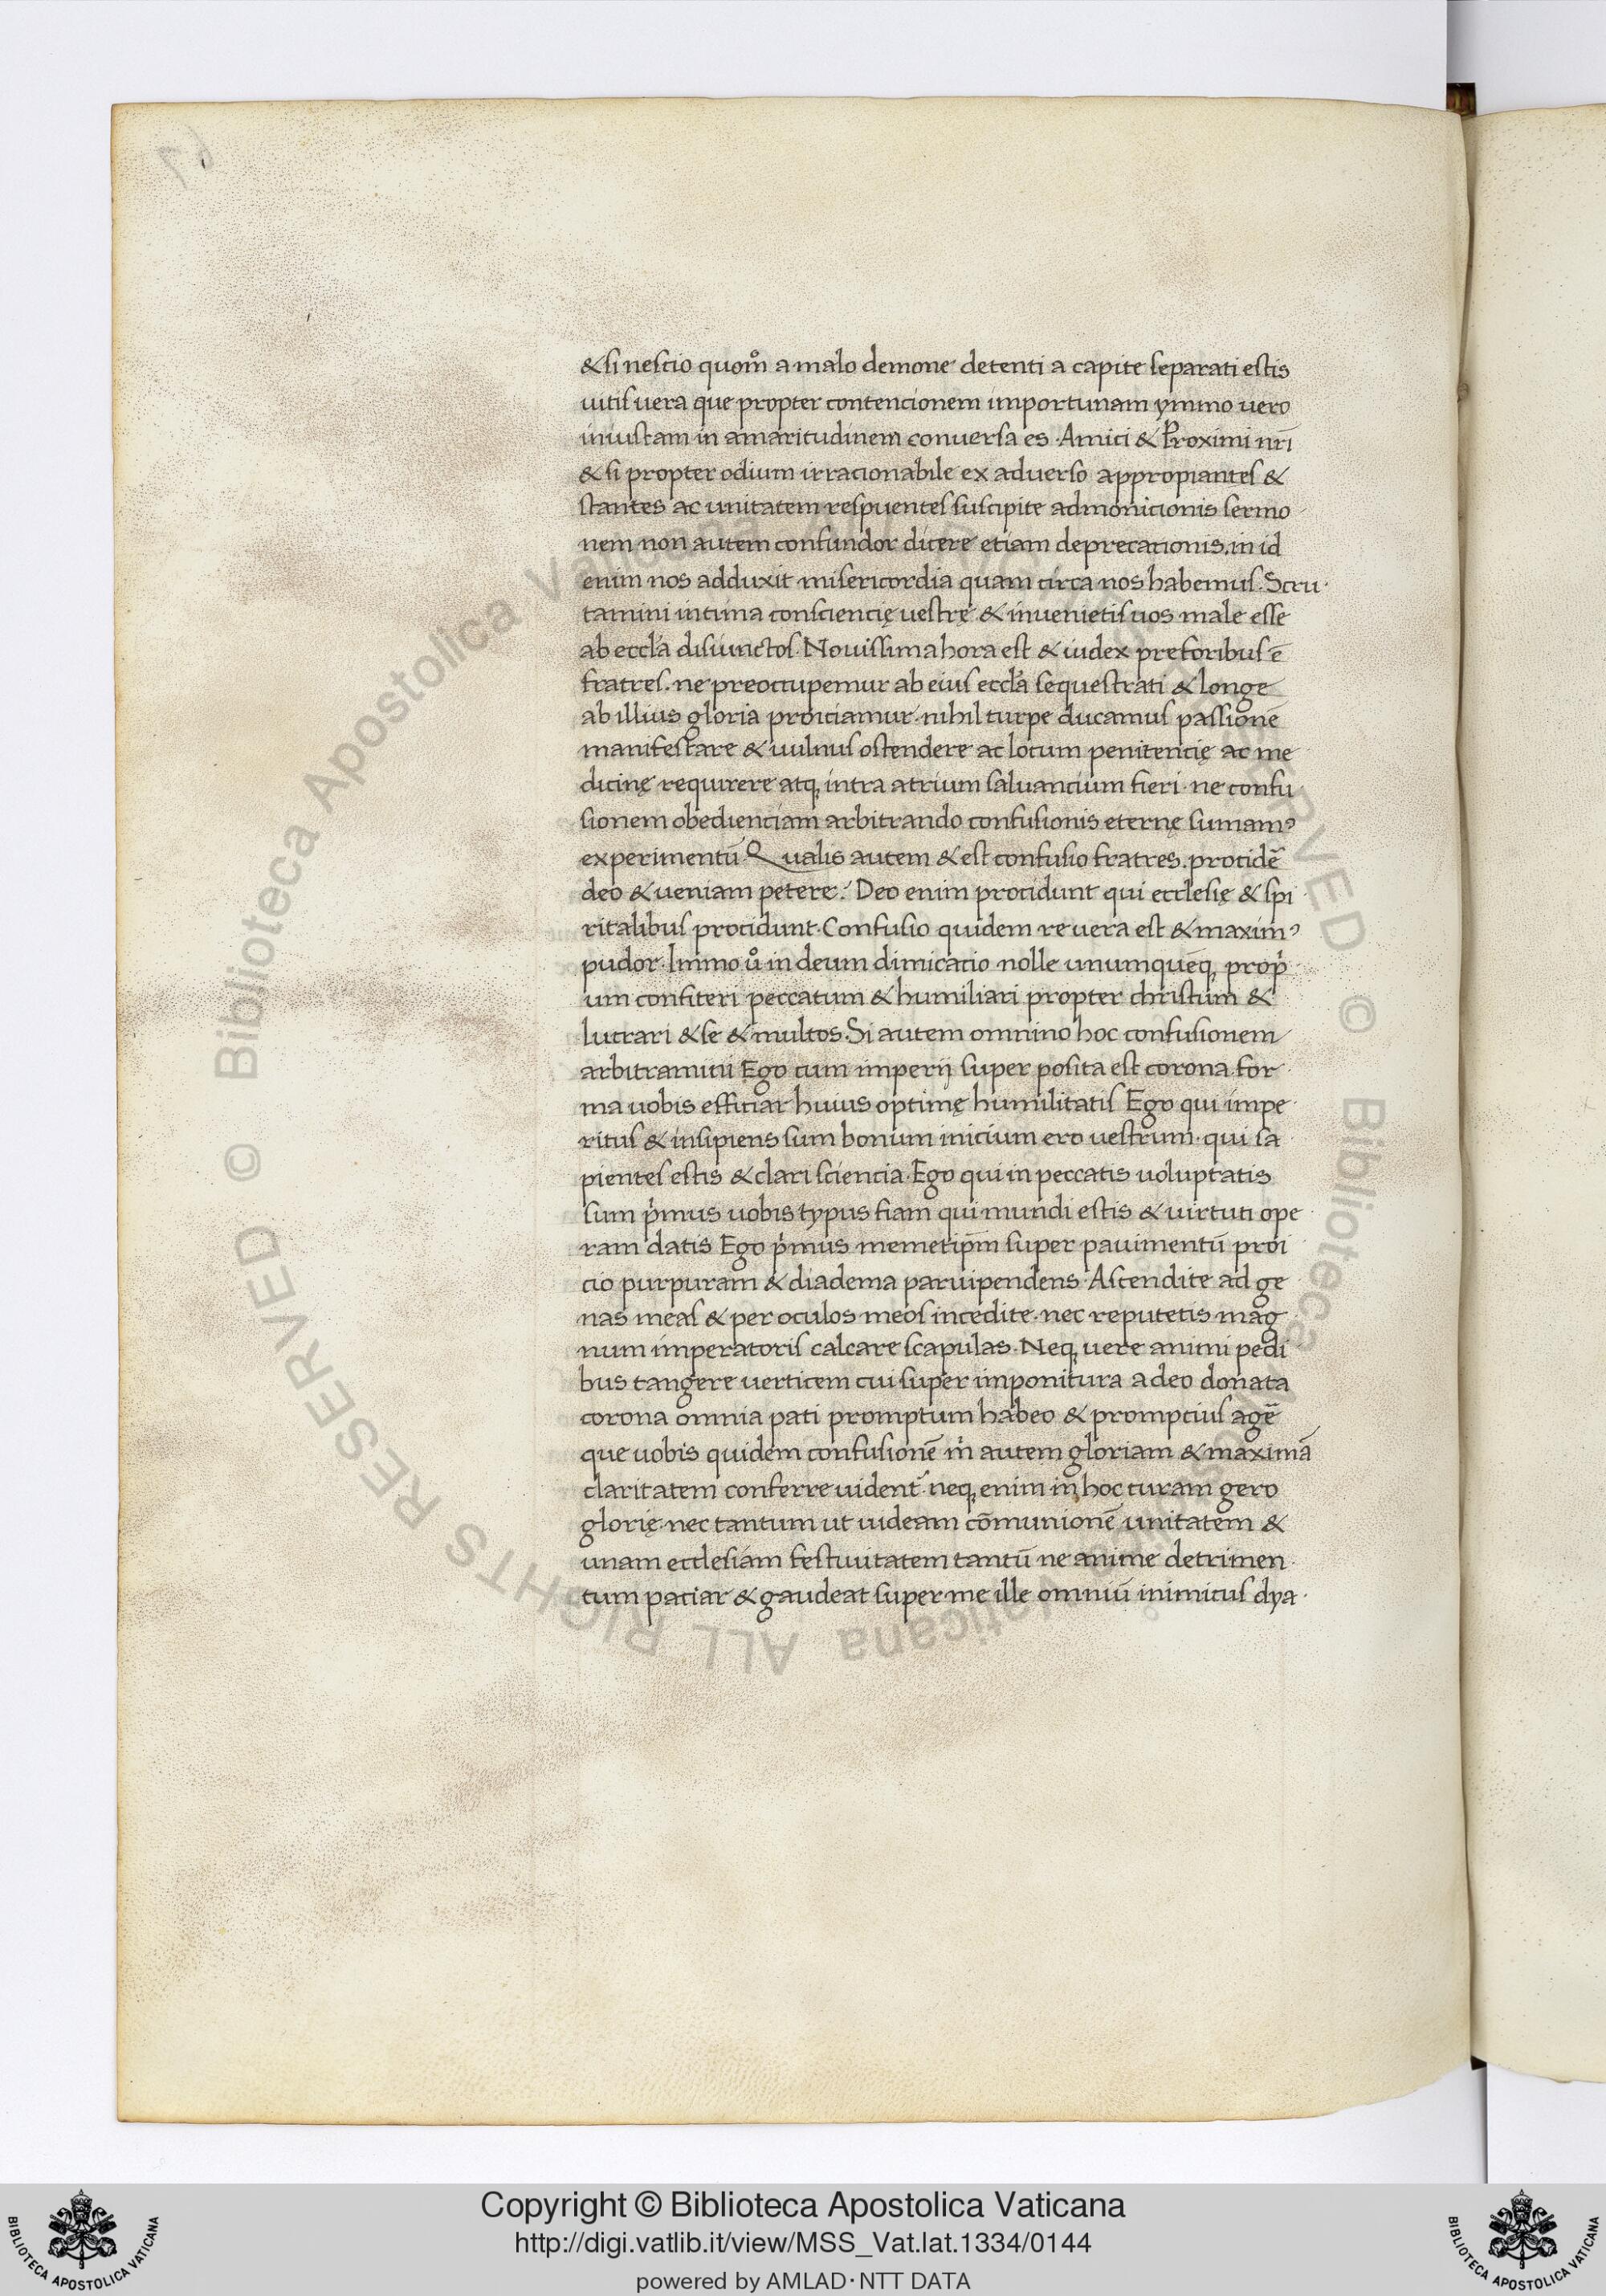 & si nescio quom̊ a malo demone detenti a capite separati estis
uitis uera que propter contencionem importunam ymmo uero
iniustam in amaritudinem conuersa es. Amici & Proximi nr̄i
& si propter odium irracionabile ex aduerso appropiantes &
stantes ac unitatem respuentes suscipite admonicionis sermo
nem non autem confundor dicere etiam deprecationis. in id
enim nos adduxit misericordia quam circa nos habemus. Scru-
tamini intima consciencię uestrę & inuenietis uos male esse
ab eccl'a disiunctos. Nouissima hora est & iudex pre foribus ē
fratres. ne preoccupemur ab eius eccl'a sequestrati & longe
ab illius gloria proiciamur. nihil turpe ducamus passionē
manifestare & uulnus ostendere ac locum penitencię ac me
dicinę requirere atq; intra atrium saluancium fieri. ne confu
sionem obedienciam arbitrando confusionis eternę sumamꝰ
experimentū. Qualis autem & est confusio fratres. procidē
deo & ueniam petere? Deo enim procidunt qui ecclesię & spi
ritalibus procidunt. Confusio quidem re uera est & maximꝰ
pudor. Immo ů in deum dimicatio nolle unumqueq; prop
um confiteri peccatum & humiliari propter christum &
lucrari & se & multos. Si autem omnino hoc confusionem
arbitramini Ego cum imperij super posita est corona for
ma uobis efficiar huius optimę humilitatis Ego qui impe
ritus & insipiens sum bonum inicium ero uestrum. qui sa
pientes estis & clari sciencia. Ego qui in peccatis uoluptatis
sum pͥmus uobis typus fiam qui mundi estis & uirtuti ope
ram datis Ego pͥmus memetip̄m super pauimentū proi
cio purpuram & diadema paruipendens. Ascendite ad ge
nas meas & per oculos meos incedite. nec reputetis mag
num imperatoris calcare scapulas. Neq; uere animi pedi
bus tangere uerticem cui super imponitura a deo donata
corona omnia pati promptum habeo & prompcius agē
que uobis quidem confusionē m̍ autem gloriam & maximā
claritatem conferre uident᷑. neq; enim in hoc curam gero
glorię. nec tantum ut uideam cōmunionē unitatem &
unam ecclesiam festiuitatem tantū ne anime detrimen
tum paciar & gaudeat super me ille omniū inimicus dya
Copyright © Biblioteca Apostolica Vaticana
http://digi.vatlib.it/view/MSS_Vat.lat.1334/0144
powered by AMLAD·NTT DATA
BIBLIOTECA APOSTOLICA VATICANA
BIBLIOTECA APOSTOLICA VATICANA
© Biblioteca Apostolica Vaticana
ALL RIGHTS RESERVED
© Biblioteca